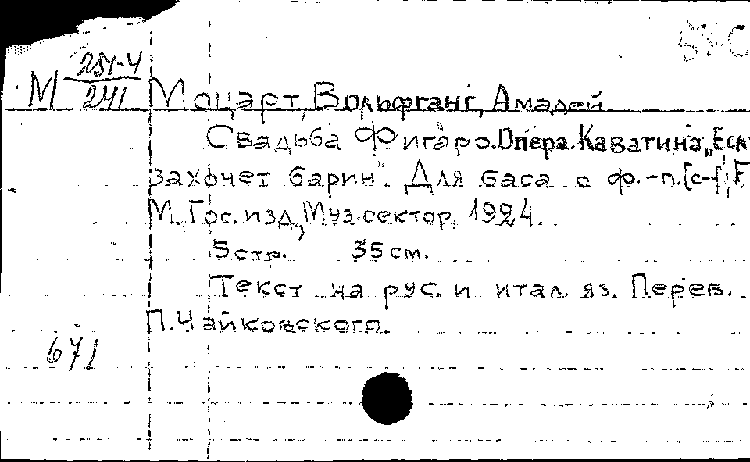 М 251-4
241
Моцарт, Вольфганг, Амадей.
Свадьба Фигаро. Опера. Каватина „Если
захочет барин". Для баса с ф.-п. [c-f; F
М. Гос. изд., Муз. сектор, 1924.
5 стр. 35 см.
Текст на рус. и итал. яз. Перев.
П. Чайковского.
671